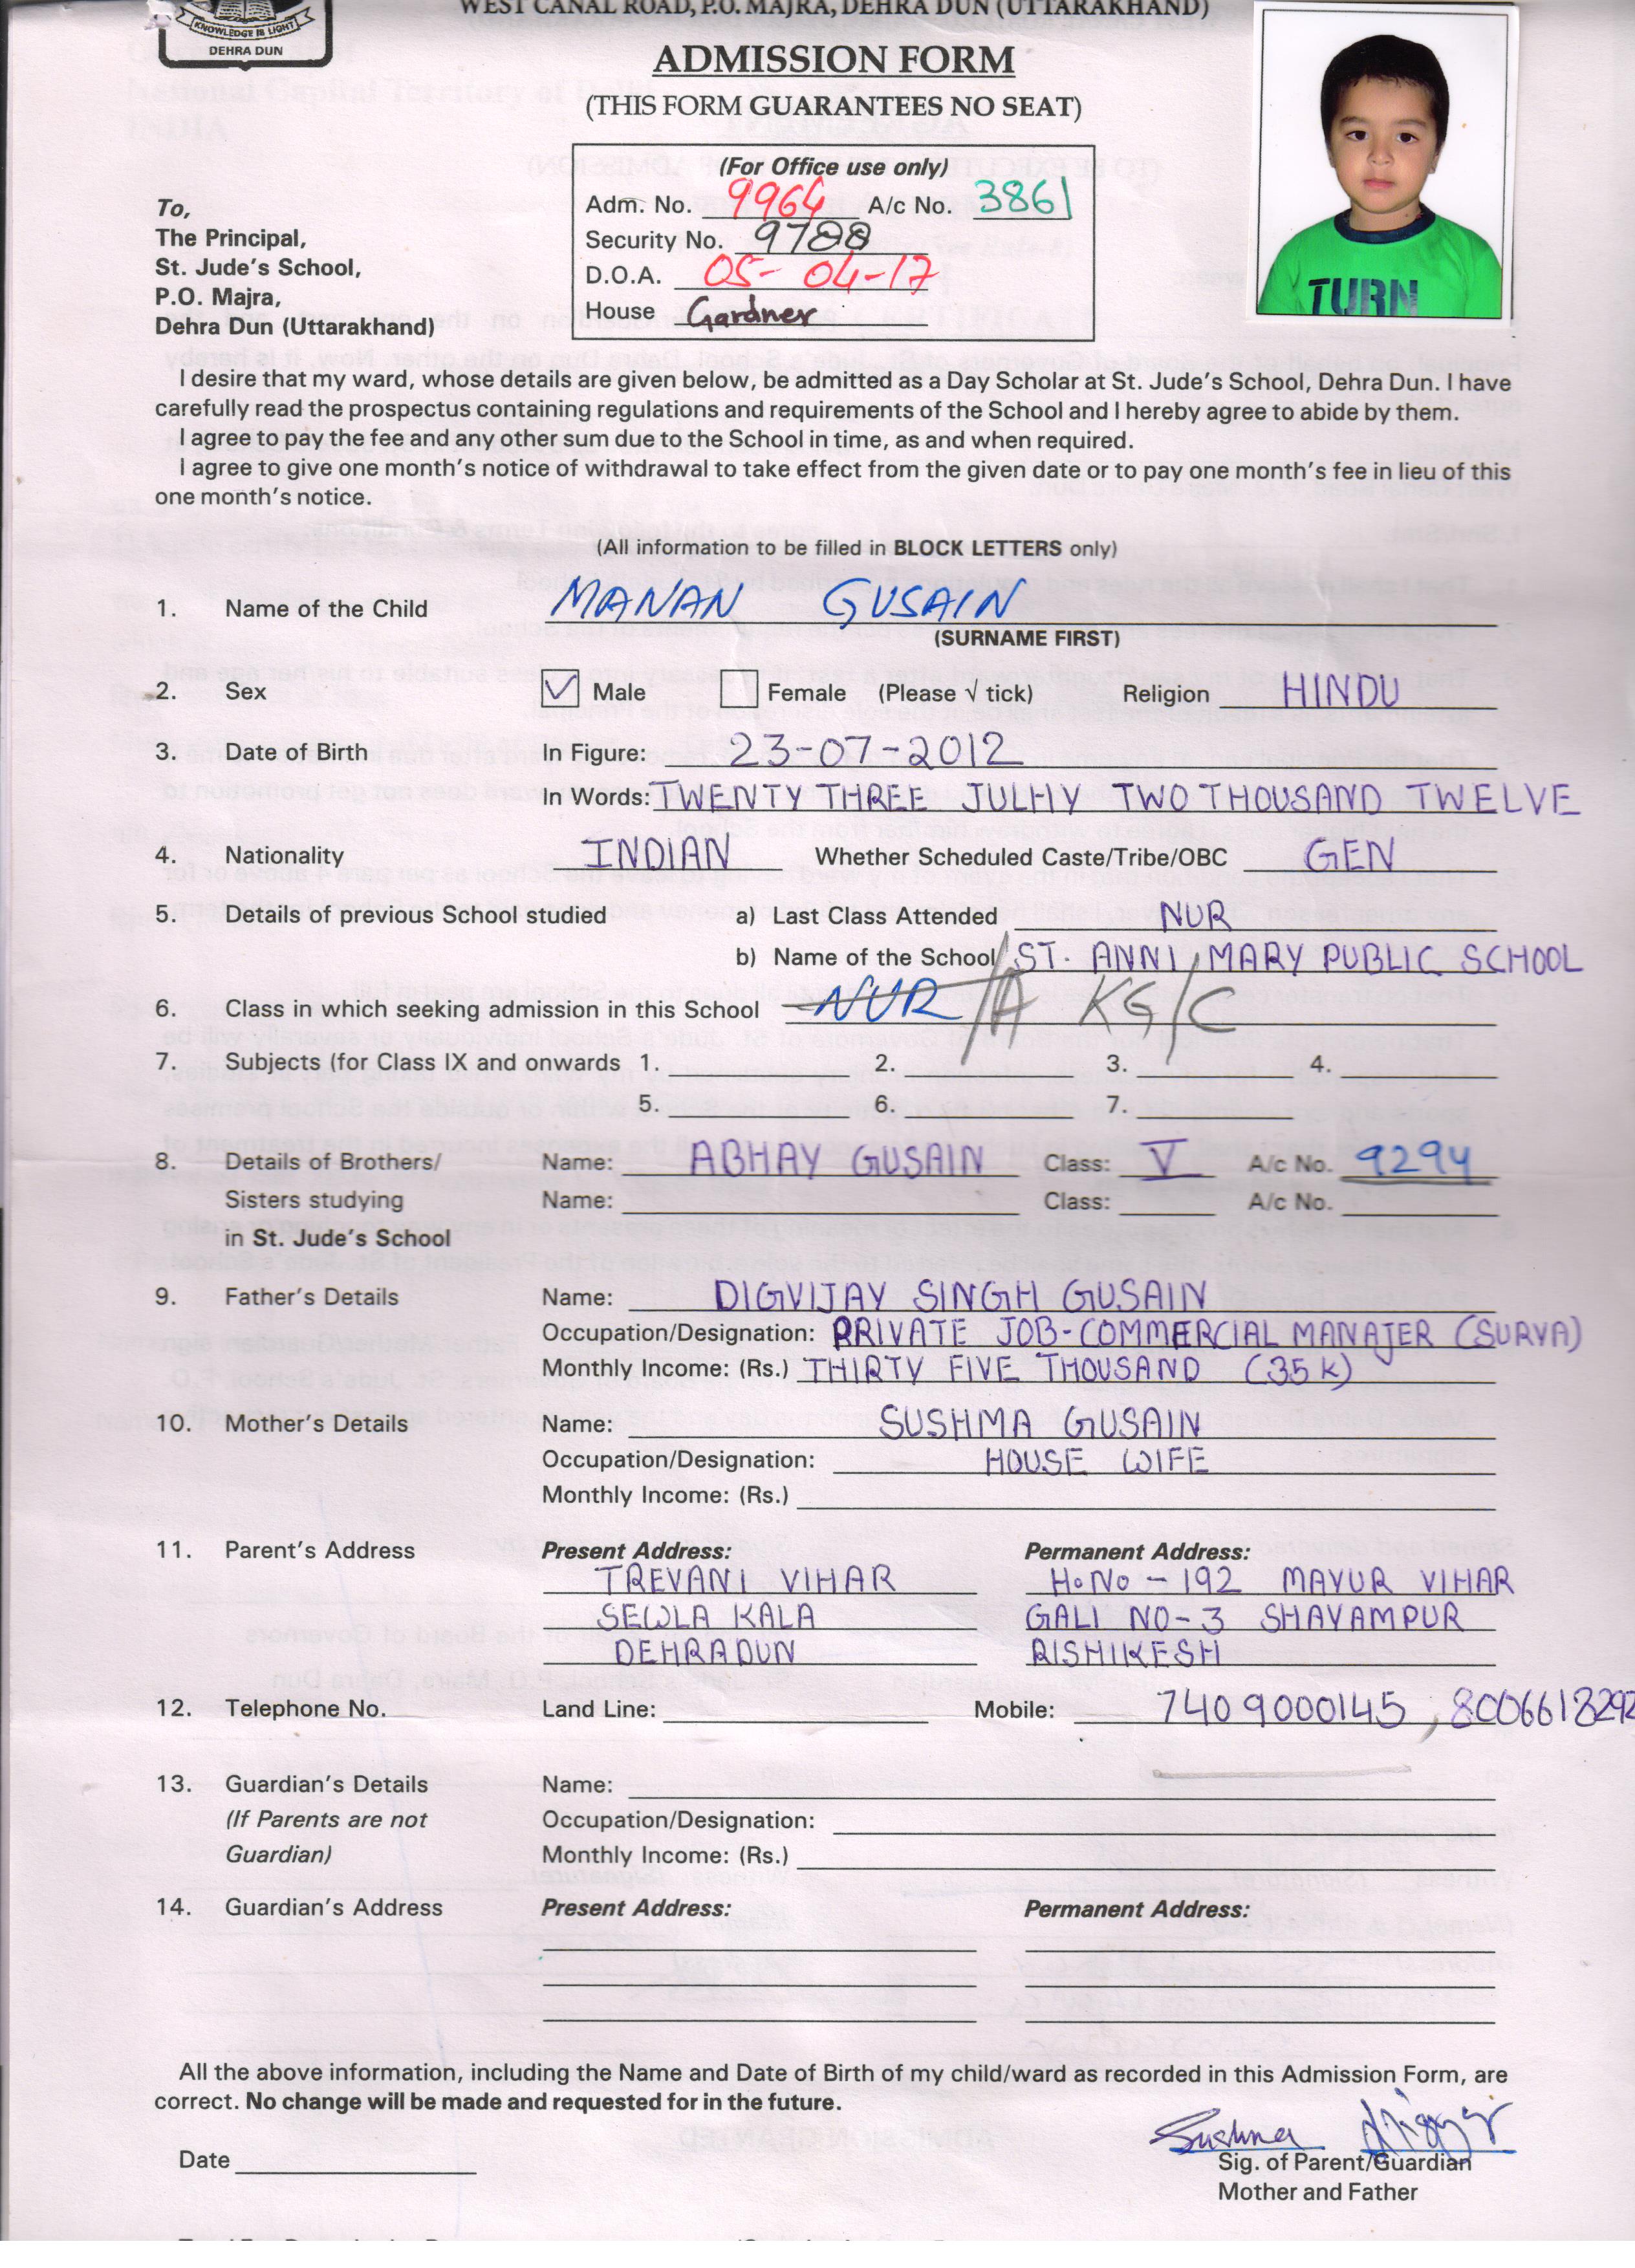 KNOWLEDGE IS LIGHT
DEHRA DUN
WEST CANAL ROAD, P.O. MAJRA, DEHRA DUN (UTTARAKHAND)
ADMISSION FORM
(THIS FORM GUARANTEES NO SEAT)
(For Office use only)
Adm. No. 9964 A/c No. 3861
Security No. 9788
D.O.A. 05-04-17
House Gardner
TURN
To,
The Principal,
St. Jude's School,
P.O. Majra,
Dehra Dun (Uttarakhand)
I desire that my ward, whose details are given below, be admitted as a Day Scholar at St. Jude's School, Dehra Dun. I have
carefully read the prospectus containing regulations and requirements of the School and I hereby agree to abide by them.
I agree to pay the fee and any other sum due to the School in time, as and when required.
I agree to give one month's notice of withdrawal to take effect from the given date or to pay one month's fee in lieu of this
one month's notice.
(All information to be filled in BLOCK LETTERS only)
1. Name of the Child MANAN GUSAIN
(SURNAME FIRST)
2. Sex ✓ Male Female (Please √ tick) Religion HINDU
3. Date of Birth In Figure: 23-07-2012
In Words: TWENTY THREE JULHY TWO THOUSAND TWELVE
4. Nationality INDIAN Whether Scheduled Caste/Tribe/OBC GEN
5. Details of previous School studied a) Last Class Attended NUR
b) Name of the School ST. ANNI MARY PUBLIC SCHOOL
6. Class in which seeking admission in this School NUR/A KG/C
7. Subjects (for Class IX and onwards 1. 2. 3. 4.
5. 6. 7.
8. Details of Brothers/ Name: ABHAY GUSAIN Class: V A/c No. 9294
Sisters studying Name: Class: A/c No.
in St. Jude's School
9. Father's Details Name: DIGVIJAY SINGH GUSAIN
Occupation/Designation: PRIVATE JOB-COMMERCIAL MANAJER (SURYA)
Monthly Income: (Rs.) THIRTY FIVE THOUSAND (35 K)
10. Mother's Details Name: SUSHMA GUSAIN
Occupation/Designation: HOUSE WIFE
Monthly Income: (Rs.)
11. Parent's Address Present Address: Permanent Address:
TREVANI VIHAR H.No - 192 MAYUR VIHAR
SEWLA KALA GALI NO-3 SHAYAMPUR
DEHRADUN RISHIKESH
12. Telephone No. Land Line: Mobile: 7409000145, 8006618292
13. Guardian's Details Name:
(If Parents are not Occupation/Designation:
Guardian) Monthly Income: (Rs.)
14. Guardian's Address Present Address: Permanent Address:
All the above information, including the Name and Date of Birth of my child/ward as recorded in this Admission Form, are
correct. No change will be made and requested for in the future.
Sushma
Date Sig. of Parent/Guardian
Mother and Father